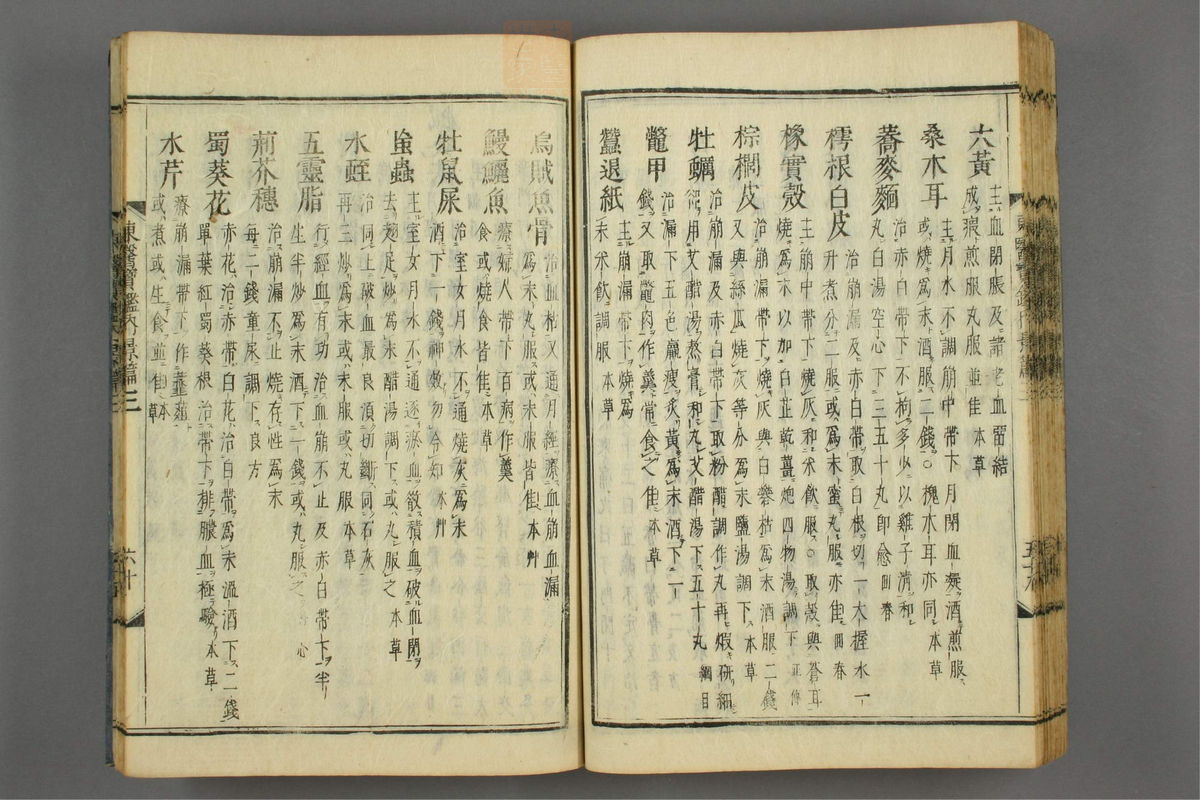 大黃
主血閉脹及諸老血留結
成瘕煎服丸服並佳本草
桑木耳
主月水不調崩中帶下月閉血凝酒煎服
或燒爲末酒服二錢○槐木耳亦同本草
蕎麥麵
治赤白帶下不拘多少以雞子淸和
丸白湯空心下三五十丸卽愈回春
樗根白皮
治崩漏及赤白帶取白根切一大握水一
升煮分二服或爲末蜜丸服亦佳回春
橡實殼
主崩中帶下燒灰和米飮服○取殼與蒼耳
燒爲末以加白芷乾薑炮四物湯調下正傳
棕櫚皮
治崩漏帶下燒灰與白礬枯爲末酒服二錢
又與絲瓜燒灰等分爲末鹽湯調下本草
牡蠣
治崩漏及赤白帶下取粉醋調作丸再煆硏細
却用艾醋熬膏和丸艾醋湯下五十丸綱目
鼈甲
治漏下五色羸瘦炙黃爲末酒下一
錢又取鼈肉作羹常食之佳本草
蠶退紙
主崩漏帶下燒爲
末米飮調服本草
烏賊魚骨
治血枯又通月經療血崩血漏
爲末丸服或末服皆佳本艸
鰻鱺魚
療婦人帶下百病作羹
食或燒食皆佳本草
牡鼠屎
治室女月水不通燒灰爲末
酒下一錢神效勿令知本艸
䖟蟲
主室女月水不通逐瘀血破積血破血閉
去翅足炒爲末醋湯調下或丸服之本草
水蛭
治同上破血最良須切斷同石灰
再三炒爲末或末服或丸服本草
五靈脂
行經血有功治血崩不止及赤白帶下半
生半炒爲末酒下一錢或丸服之
荊芥穗
治崩漏不止燒存性爲末
每二錢童尿調下良方
蜀葵花
赤花治赤帶白花治白帶爲末溫酒下二錢
單葉紅蜀葵根治帶下排膿血極驗本草
水芹
療崩漏帶下作虀葅
或煮或生食並佳本草
東醫寶鑑內景篇三
六十